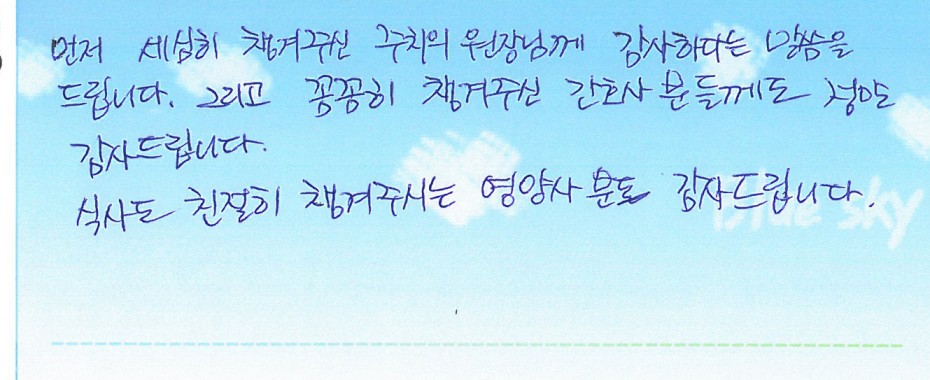 먼저 세심히 챙겨주신 주치의 원장님께 감사하다는 말씀을
드립니다. 그리고 꼼꼼히 챙겨주신 간호사 분들께도 정말
감사드립니다.
식사도 친절히 챙겨주시는 영양사 분도 감사드립니다.
blue sky